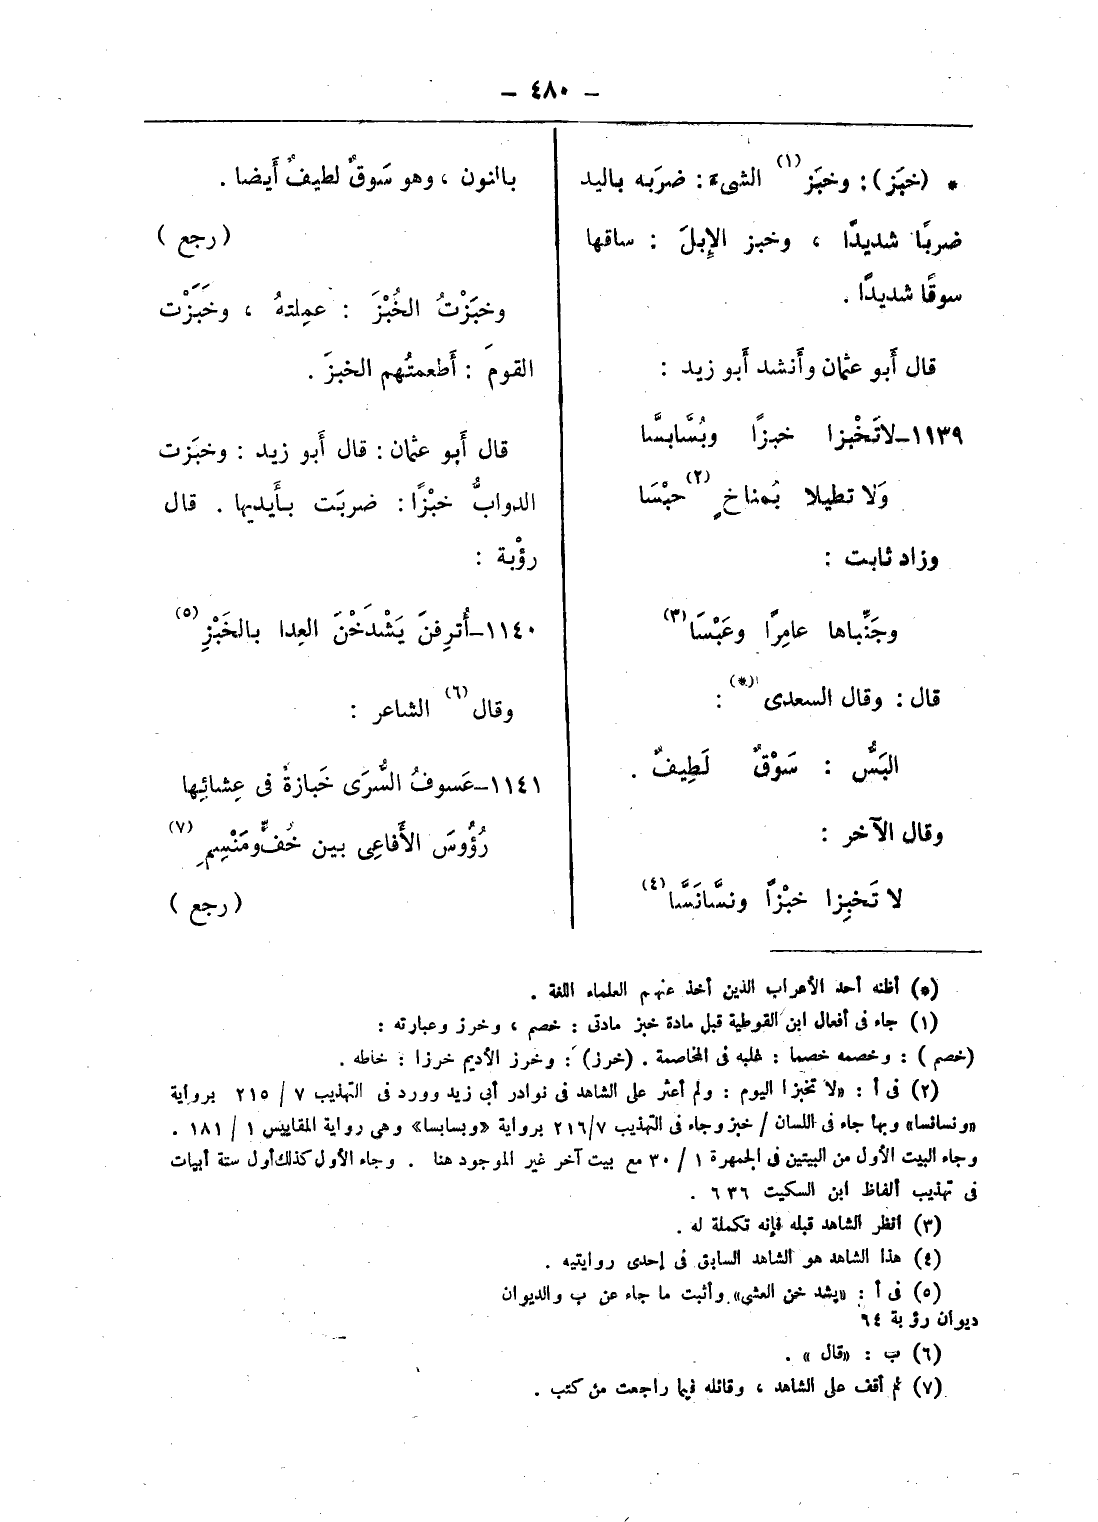 – ٤٨٠ –
* (خبَز): وخبَز(١) الشىءَ: ضرَبه باليد
ضربًا شديدًا ، وخبز الإِبلَ : ساقها
سوقًا شديدًا .
قال أَبو عثمان وأَنشد أَبو زيد :
١١٣٩–لاتَخْبِزا خبزًا وبُسَّابسَّا
وَلا تطيلا بُمناخٍ(٢) حبْسَا
وزاد ثابت :
وجَنِّباها عامِرًا وعَبْسَا(٣)
قال : وقال السعدى(*) :
البَسُّ : سَوْقٌ لَطِيفٌ .
وقال الآخر :
لا تَخبِزا خبْزًا ونسَّانَسَّا(٤)
بالنون ، وهو سَوقٌ لطيفٌ أَيضا .
(رجع)
وخبَزْتُ الخُبْزَ : عمِلتهُ ، وخَبَزْت
القومَ : أَطعمتُهم الخبزَ .
قال أَبو عثمان : قال أَبو زيد : وخبَزت
الدوابُّ خبْزًا : ضربَت بأَيديها . قال
رؤْبة :
١١٤٠–أُترِفنَ يَشْدَخْنَ العِدا بالخَبْزِ(٥)
وقال(٦) الشاعر :
١١٤١–عَسوفُ السُّرَى خَبازةٌ فى عِشائِها
رُؤُوسَ الأَفاعِى بين خُفٍّ ومَنْسِمِ(٧)
(رجع)
(*) أظنه أحد الأعراب الذين أخذ عنهم العلماء اللغة .
(١) جاء فى أفعال ابن القوطية قبل مادة خبز مادتى : خصم ، وخرز وعبارته :
(خصم) : وخصمه خصما : غلبه فى المخاصمة . (خرز) : وخرز الأديم خرزا : خاطه .
(٢) فى أ : «لا تخبزا اليوم : ولم أعثر على الشاهد فى نوادر أبى زيد وورد فى التهذيب ٧ / ٢١٥ برواية
«ونسانسا» وبها جاء فى اللسان / خبز وجاء فى التهذيب ٧/٢١٦ برواية «وبسابسا» وهى رواية المقاييس ١ / ١٨١ .
وجاء البيت الأول من البيتين فى الجمهرة ١ / ٣٠ مع بيت آخر غير الموجود هنا . وجاء الأول كذلك أول ستة أبيات
فى تهذيب ألفاظ ابن السكيت ٦٣٦ .
(٣) انظر الشاهد قبله فإنه تكملة له .
(٤) هذا الشاهد هو الشاهد السابق فى إحدى روايتيه .
(٥) فى أ : «يشد خن العشى» وأثبت ما جاء عن ب والديوان
ديوان رؤبة ٦٤
(٦) ب : «قال» .
(٧) لم أقف على الشاهد ، وقائله فيما راجعت من كتب .